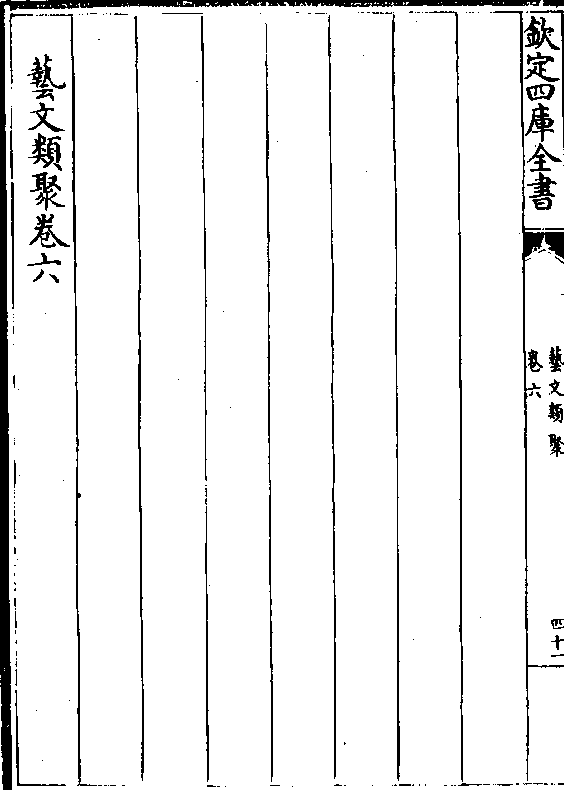 欽定四庫全書
藝文類聚
卷六
四十一
藝文類聚卷六